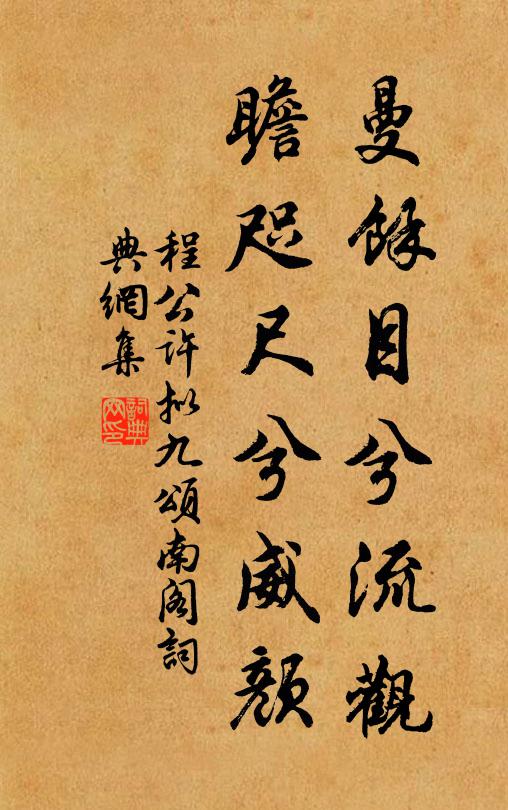 曼餘目兮流觀
瞻咫尺兮威顏
程公許拟九頌南閣詞
典網集
詞典網印